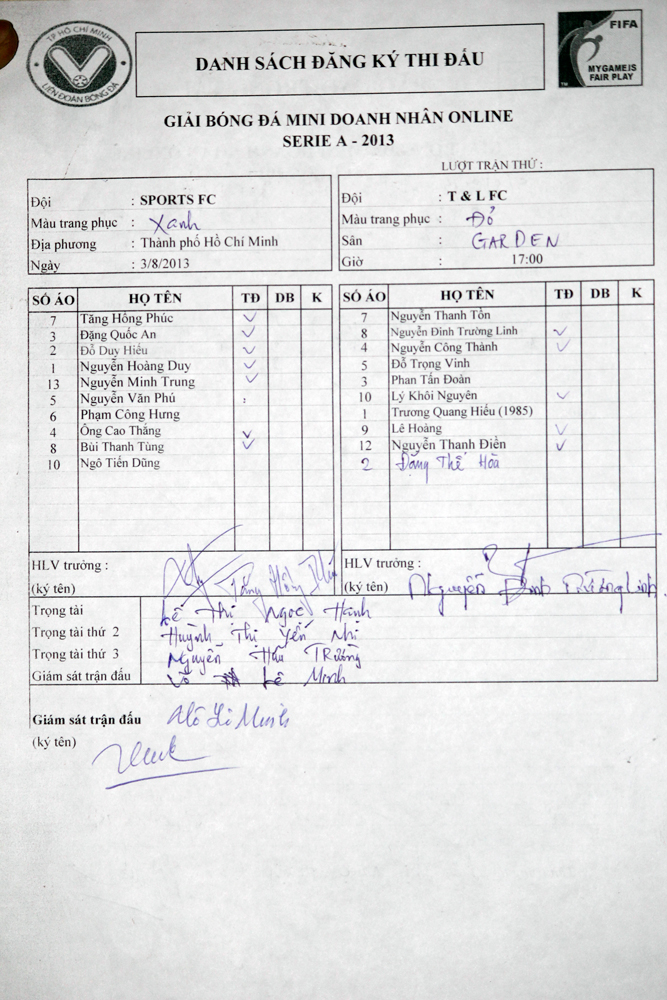 TP HỒ CHÍ MINH
LIÊN ĐOÀN BÓNG ĐÁ
DANH SÁCH ĐĂNG KÝ THI ĐẤU
FIFA
MY GAME IS
FAIR PLAY
GIẢI BÓNG ĐÁ MINI DOANH NHÂN ONLINE
SERIE A - 2013
LƯỢT TRẬN THỨ :
Đội : SPORTS FC
Màu trang phục : Xanh
Địa phương : Thành phố Hồ Chí Minh
Ngày : 3/8/2013
Đội : T & L FC
Màu trang phục : Đỏ
Sân : GARDEN
Giờ : 17:00
SỐ ÁO HỌ TÊN TĐ DB K
7 Tăng Hồng Phúc ✓
3 Đặng Quốc An ✓
2 Đỗ Duy Hiếu ✓
1 Nguyễn Hoàng Duy ✓
13 Nguyễn Minh Trung ✓
5 Nguyễn Văn Phú :
6 Phạm Công Hưng
4 Ông Cao Thắng ✓
8 Bùi Thanh Tùng ✓
10 Ngô Tiến Dũng
SỐ ÁO HỌ TÊN TĐ DB K
7 Nguyễn Thanh Tồn
8 Nguyễn Đình Trường Linh ✓
4 Nguyễn Công Thành ✓
5 Đỗ Trọng Vinh
3 Phan Tấn Đoàn
10 Lý Khôi Nguyên ✓
1 Trương Quang Hiếu (1985)
9 Lê Hoàng ✓
12 Nguyễn Thanh Điền ✓
2 Đặng Thế Hòa
HLV trưởng :
(ký tên) Tăng Hồng Phúc
HLV trưởng :
(ký tên) Nguyễn Đình Trường Linh
Trọng tài Lê Thị Ngọc Hạnh
Trọng tài thứ 2 Huỳnh Thị Yến Nhi
Trọng tài thứ 3 Nguyễn Hữu Trường
Giám sát trận đấu Võ Lê Minh
Giám sát trận đấu Võ Lê Minh
(ký tên)